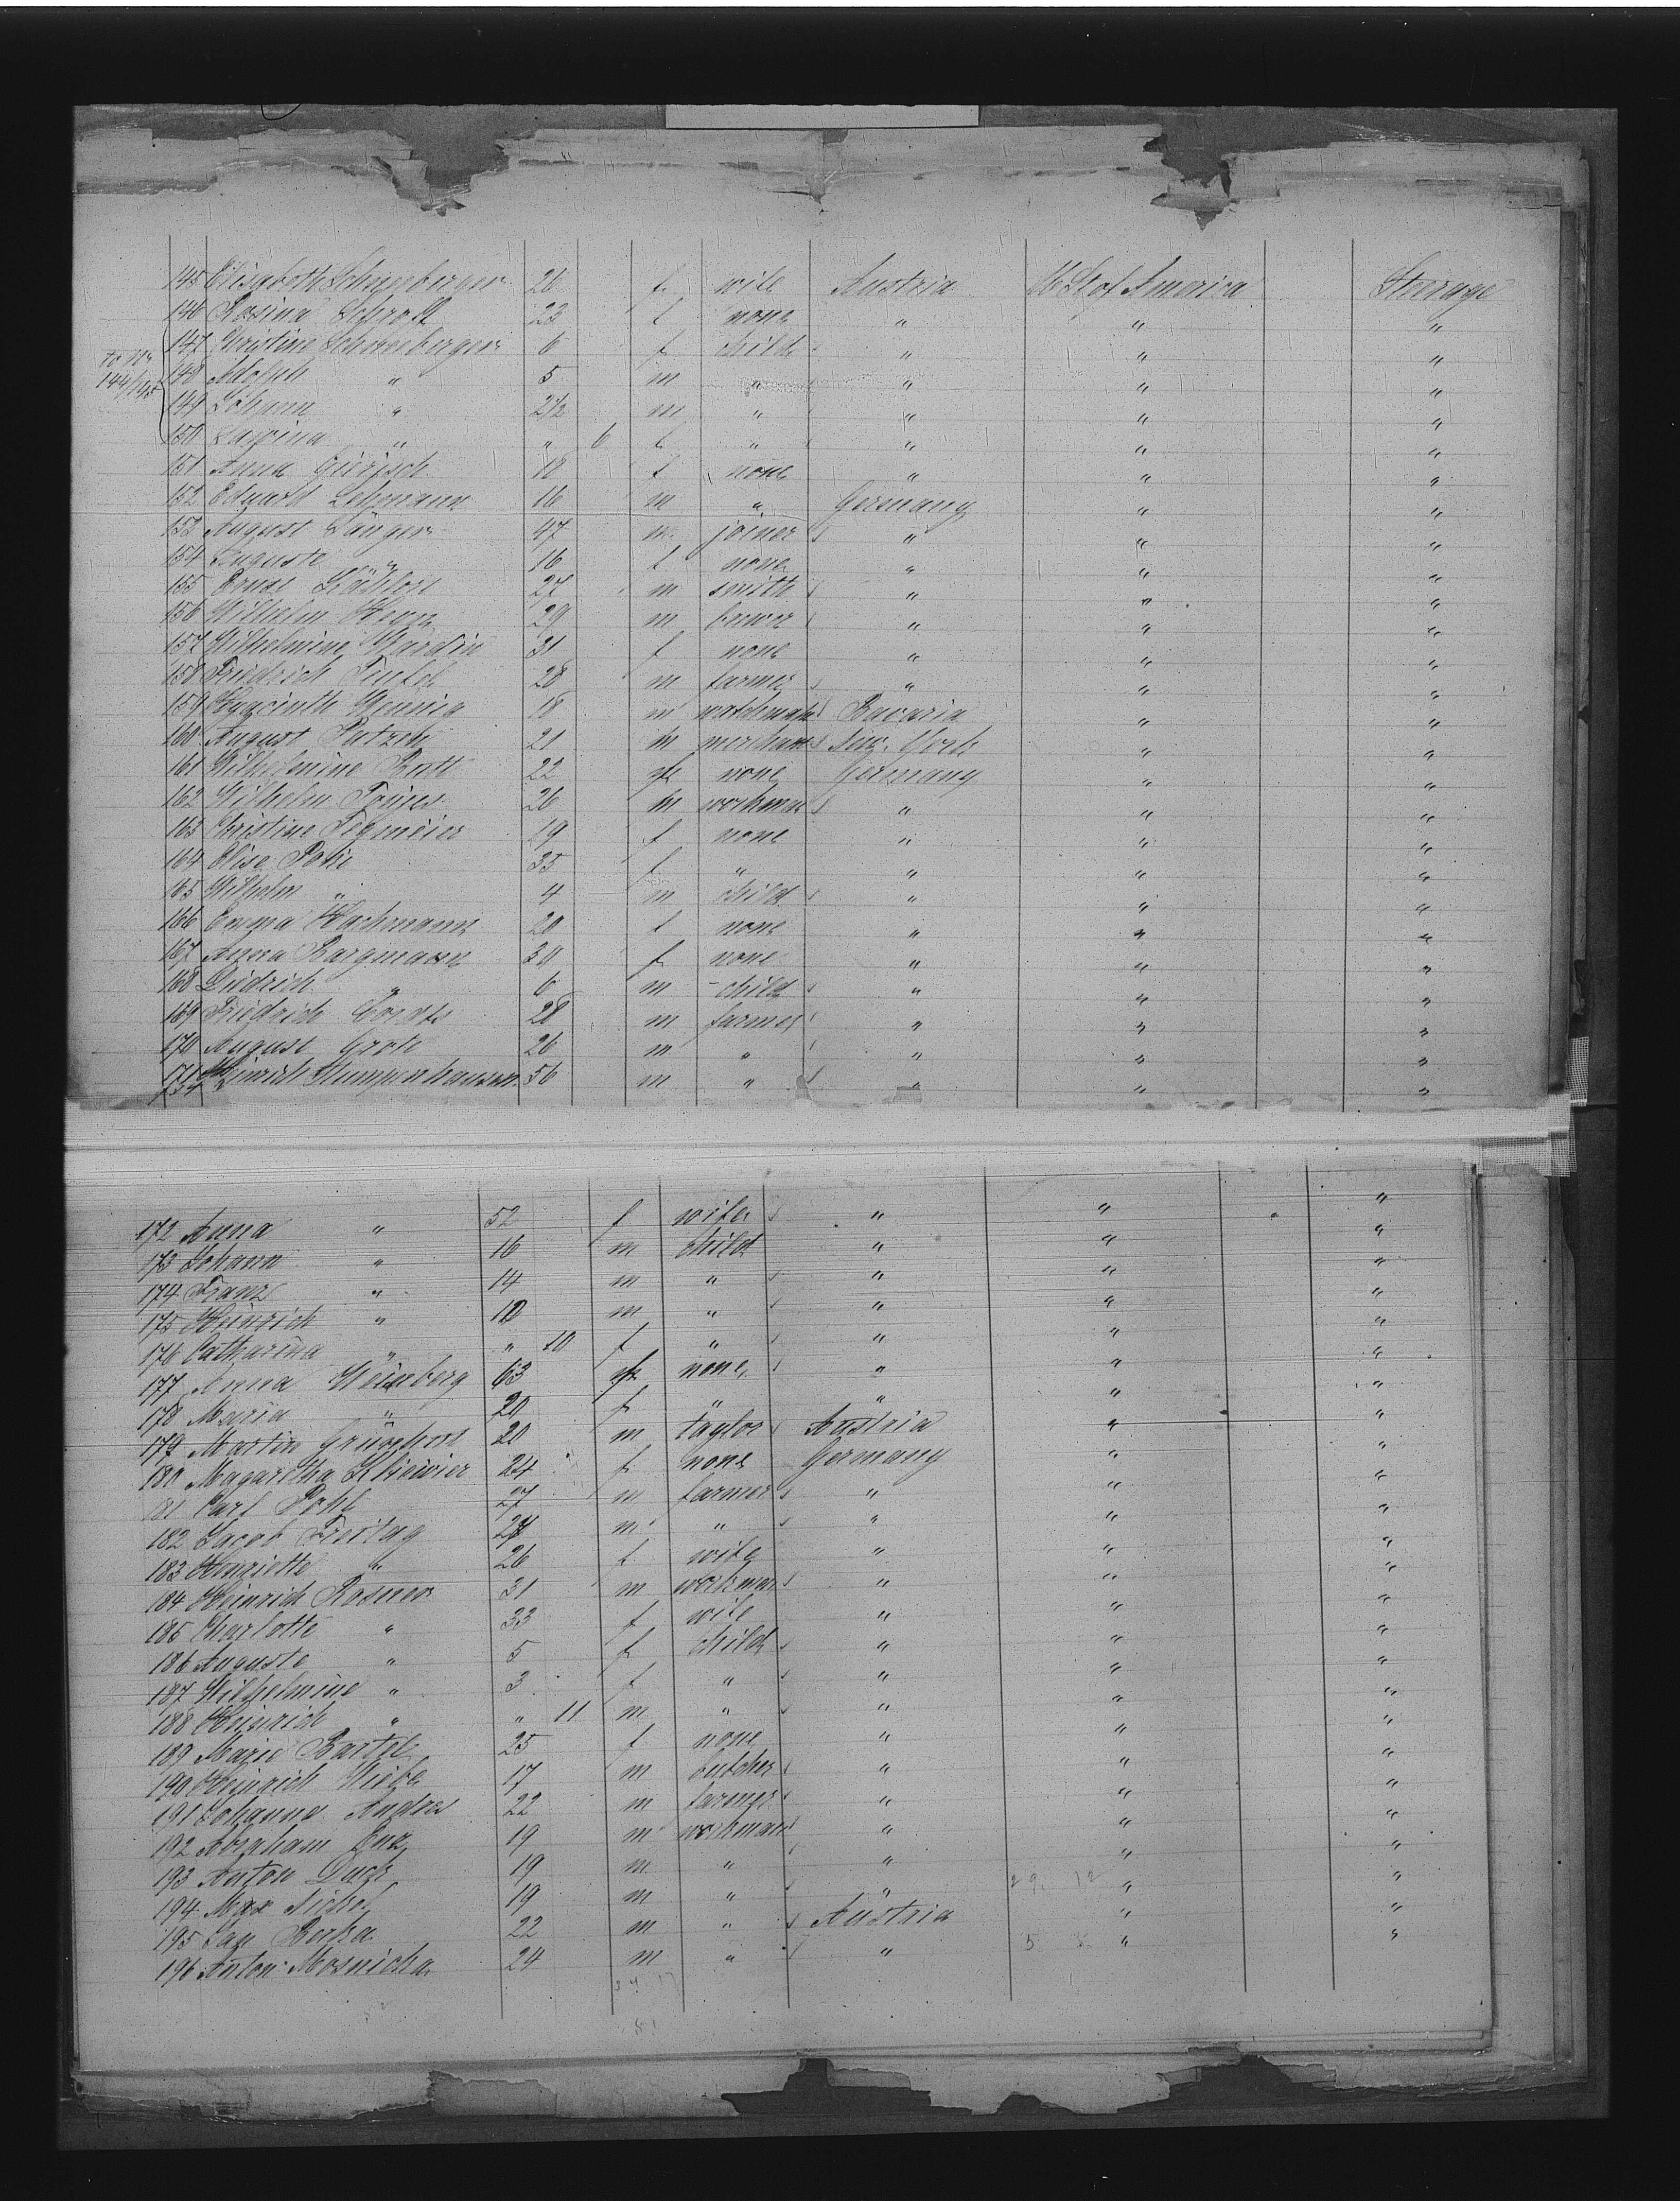 145 Elisabeth Schneeberger 26 f wife Austria U St of America Steerage
146 Rosina Schrott 23 f none " " "
147 Christine Schneeberger 6 f child " " "
to No 144/145
148 Adolph " 5 m " " " "
149 Johann " 2½ m " " " "
150 " " 6 f " " " "
151 Anna 18 f none " " "
152 Eduard Lehmann 16 m " Germany " "
153 August Sänger 47 m joiner " " "
154 Auguste " 16 f none " " "
155 Ernst 27 m smith " " "
156 Wilhelm 29 m brewer " " "
157 Wilhelmine Wardin 31 f none " " "
158 Friedrich 28 m farmer " " "
159 Hyacinth Wennig 18 m Bavaria " "
160 August Putzen 21 m merchant New York " "
161 Wilhelmine Butt 22 f none Germany " "
162 Wilhelm Tönjes 26 m workman " " "
163 Christine Tegmeier 19 f none " " "
164 Elise 35 f " " " "
165 Wilhelm " 4 m child " " "
166 Emma Wachmann 20 f none " " "
167 Anna Bargmann 30 f none " " "
168 Didrich " 6 m child " " "
169 Friedrich Cordts 28 m farmer " " "
170 August Grote 26 m " " " "
171 Heinrich Stumpenhausen 56 m " " " "
172 Anna " 52 f wife " " "
173 Johann " 16 m child " " "
174 Franz " 14 m " " " "
175 Heinrich " 10 m " " " "
176 Catharina " " 10 f " " " "
177 Anna Weinberg 63 f none " " "
178 Maria " 20 f " " " "
179 Martin Grünhut 20 m taylor Austria " "
180 Magaretha Kliewier 24 f none Germany " "
181 Carl Pohl 27 m farmer " " "
182 Jacob Freitag 27 m " " " "
183 Henriette " 26 f wife " " "
184 Heinrich Rosner 31 m workman " " "
185 Charlotte " 33 f wife " " "
186 Auguste " 5 f child " " "
187 Wilhelmine " 3 f " " " "
188 Heinrich " " 11 m " " " "
189 Marie Bartel 25 f none " " "
190 Heinrich Wiebe 17 m butcher " " "
191 Johannes Andres 22 m farmer " " "
192 Abraham Enz 19 m workman " " "
193 Anton Duck 19 m " " " "
194 Max Nickel 19 m " " " "
195 Jan Berka 22 m " Austria " "
196 Anton Mosnicka 24 m " " " "